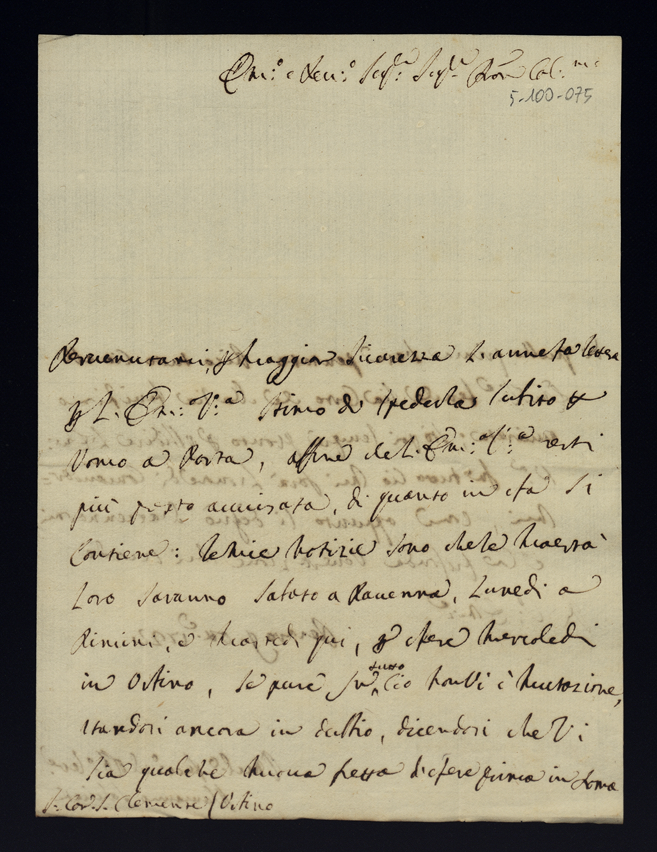 Em.º e Rev.º Sig.r Sig.r Pron Col.mo
5-100-075
Pervenutami, p maggior sicurezza l'annessa lettera
p L. Em.a V.a stimo di spedirla subito p
Uomo a Posta, affine che L. Em.a V.a resti
più presto avvisata, di quanto in essa si
Contiene: le mie notizie sono che le Maestà
Loro saranno Sabato a Ravenna, Lunedì a
Rimini, e Martedì qui, p essere Mercoledì
in Osimo, se pure in tutto Ciò non Vi è mutazione,
standosi ancora in dubbio, dicendosi che Vi
sia qualche nuova pressa d'essere prima in Roma
S. Card. S. Clemente / Osimo